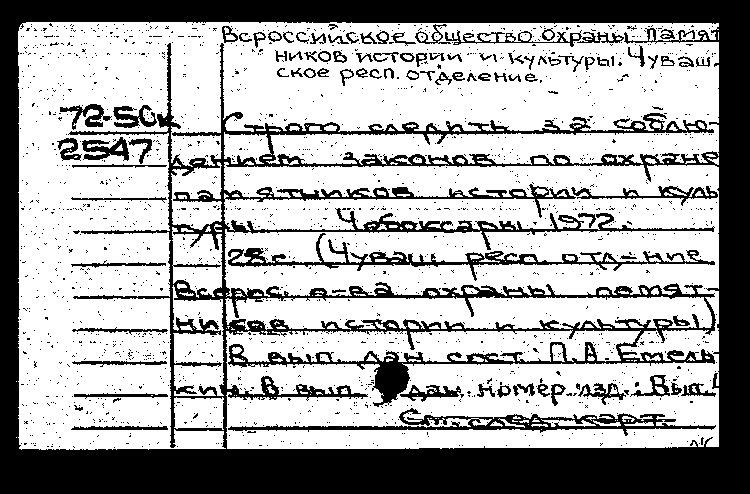 Всероссийское общество охраны памят
ников истории и культуры. Чуваш.
ское респ. отделение.
72-5Ск
2547
Строго следить за соблю-
дением законов по охране
памятников истории и куль
туры Чебоксары, 1972.
28 с. (Чуваш. респ. отд-ние
Всерос. о-ва охраны памят-
ников истории и культуры)
В вып. дан сост.: П.А. Емель
кин. В вып. дан. номер изд.: Вып.
См. след. карт.